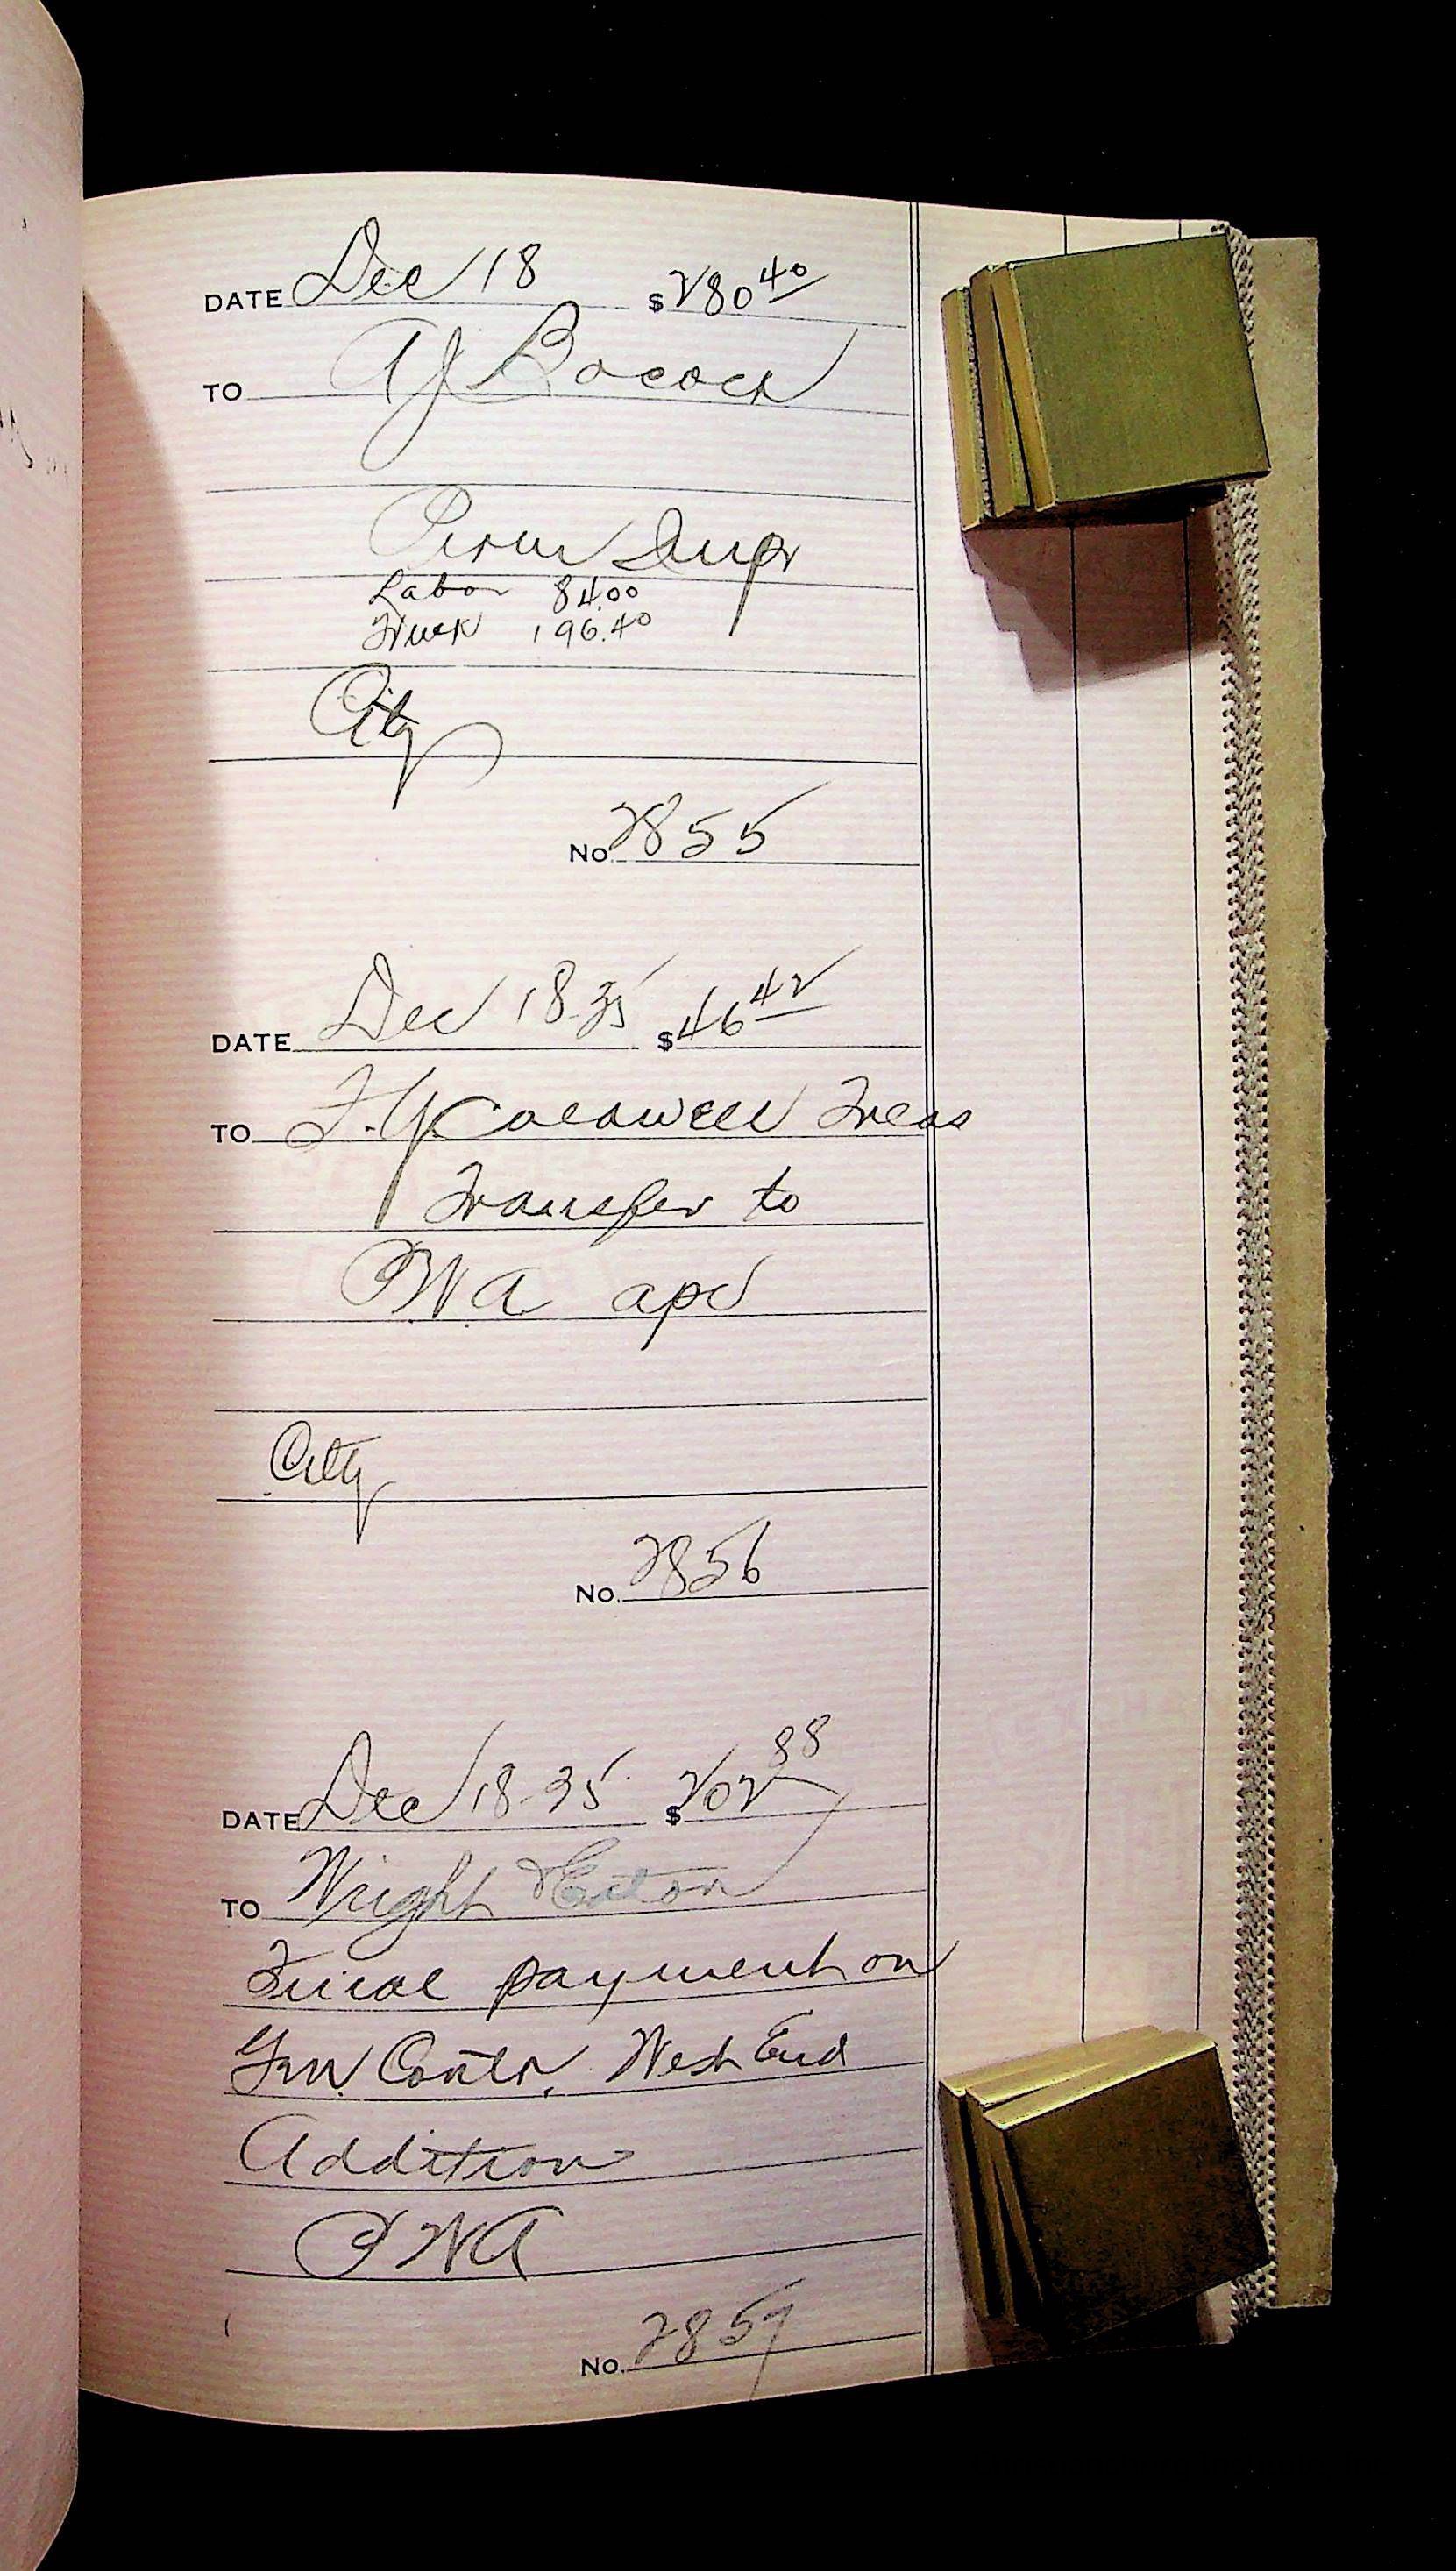 DATE Dec 18 $280 40
TO A J Bocock
Perm Impr
Labor 84.00
Truck 196.40
City
No. 2855
DATE Dec 18-35 $46 42
TO F. Y. Caldwell Treas
Transfer to
PWA
City
No. 2856
DATE Dec 18-35 $202 88
TO Wright & Eaton
Final payment on
Contr. West End
Addition
PWA
No. 2857